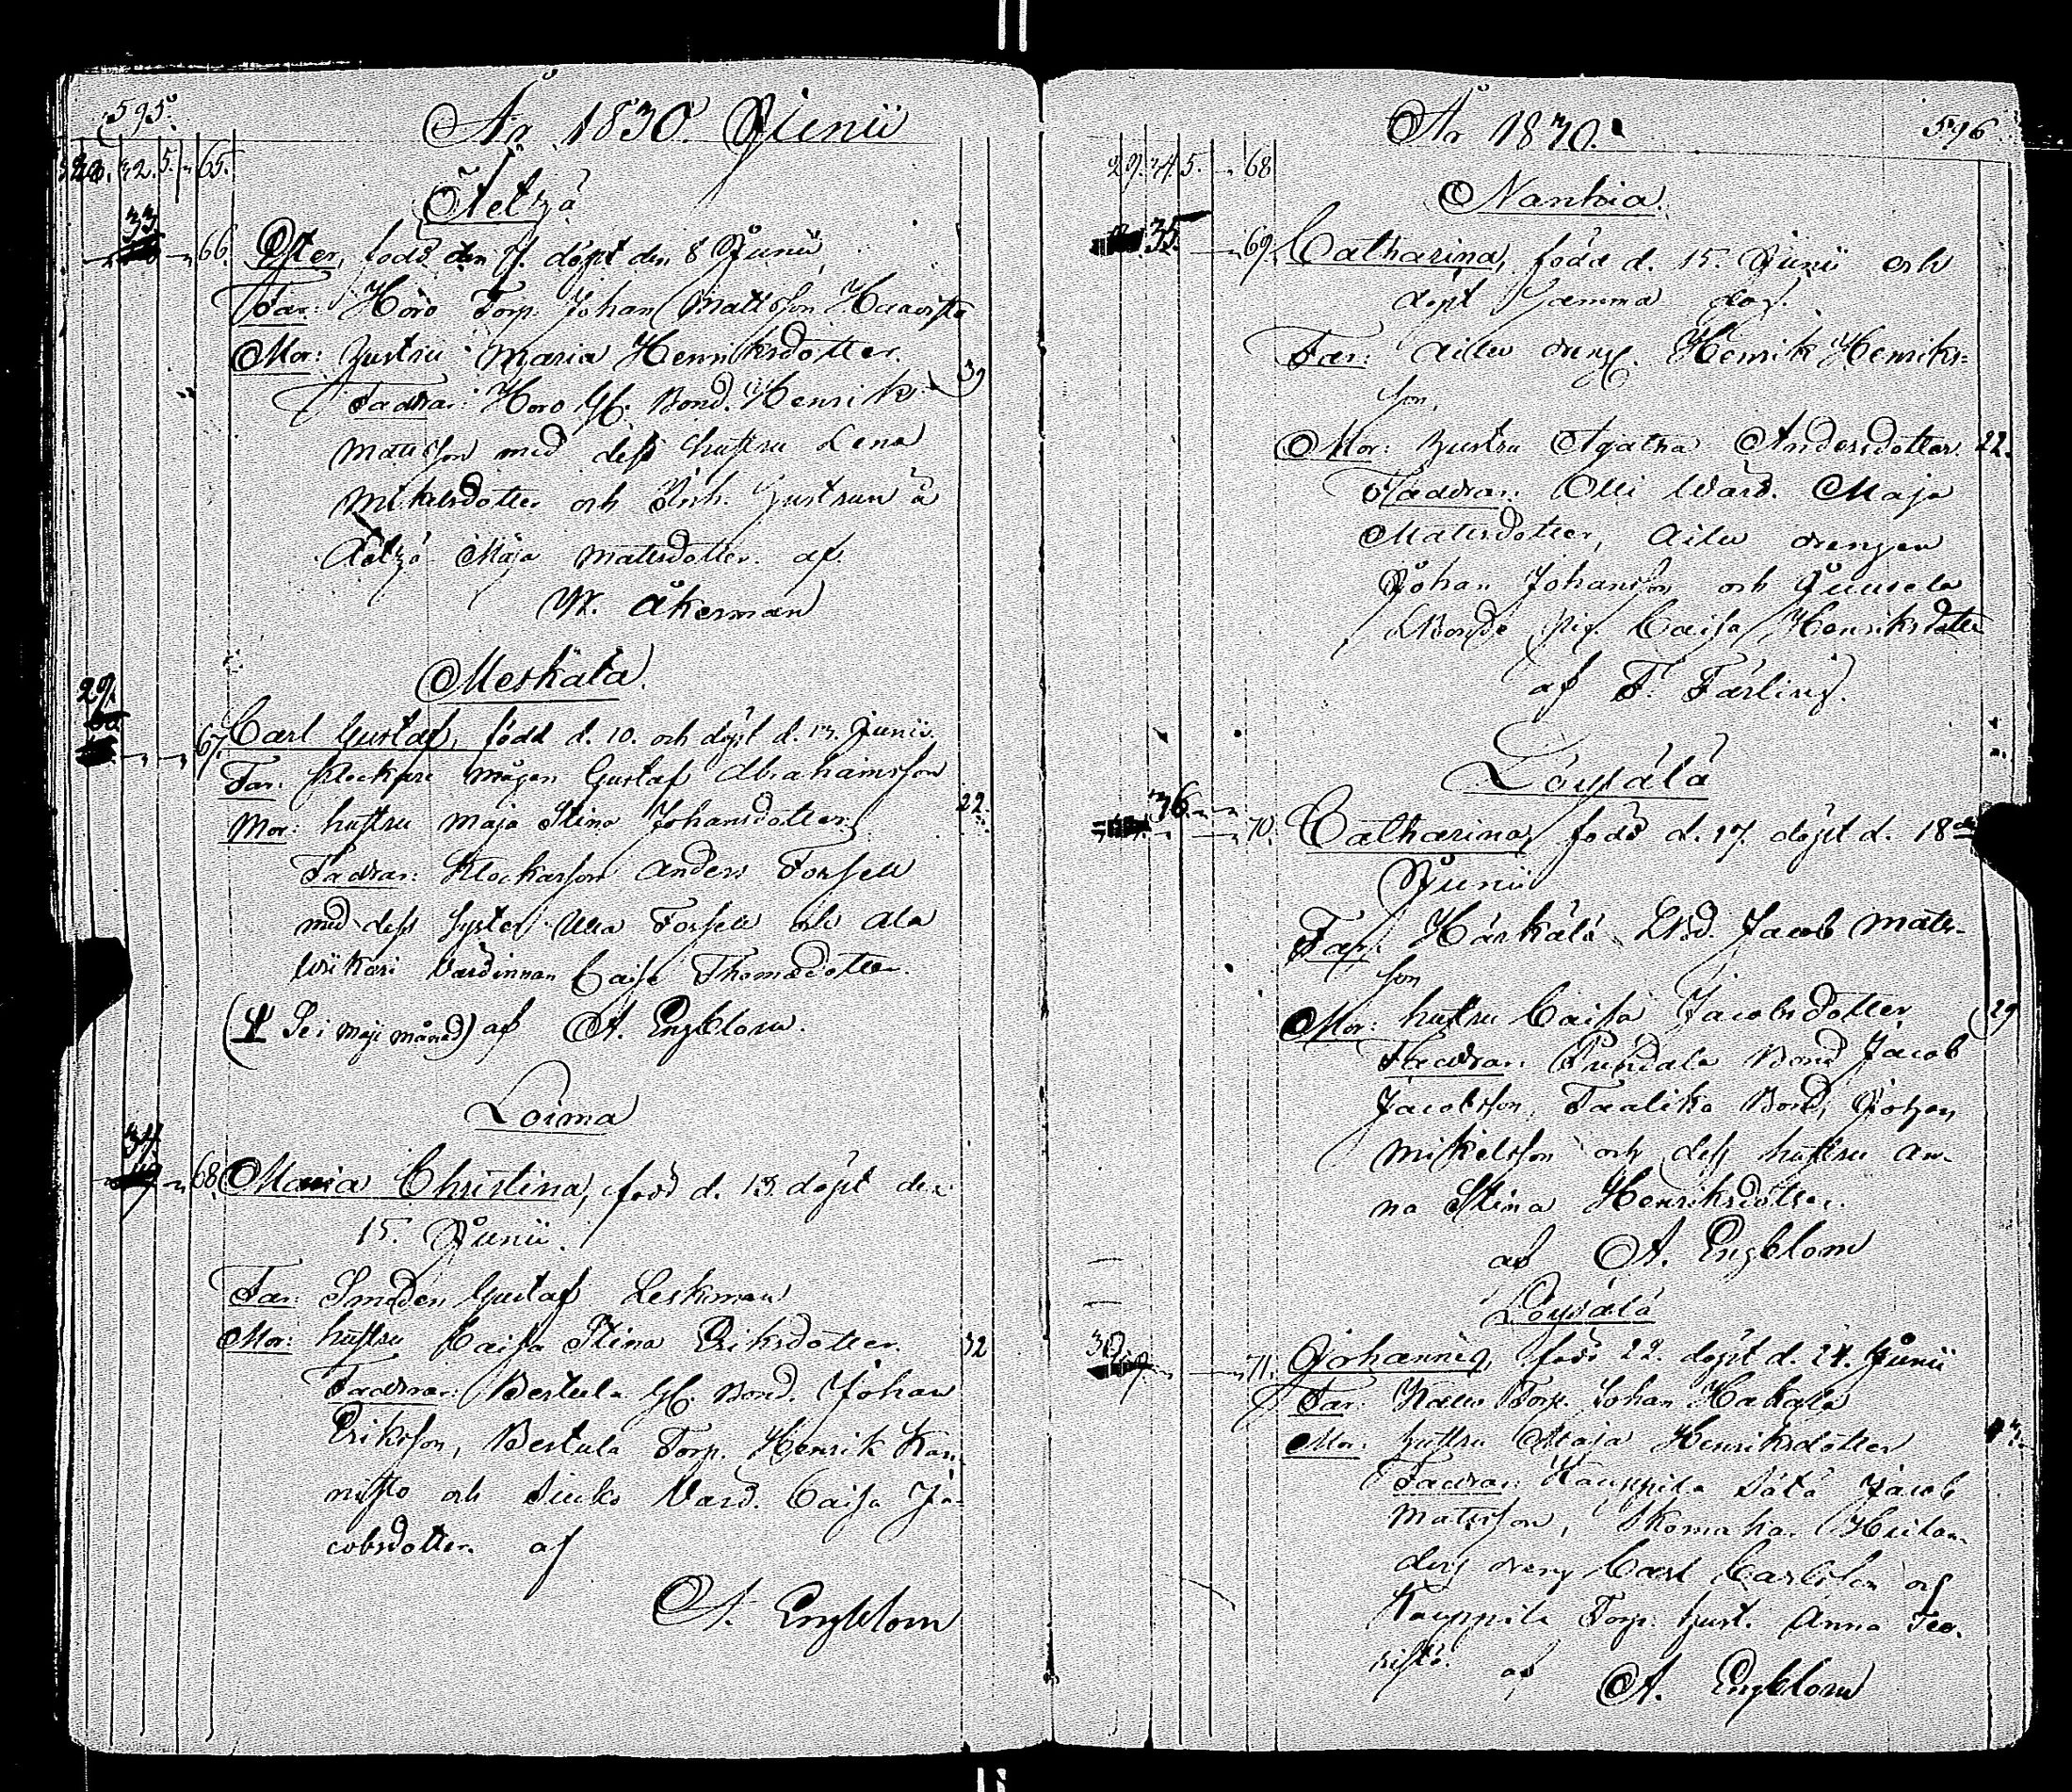 595.
År 1830. Junii
32. 5. 65.
33
66. född den 7. döpt den 8 Junii
Far: Horo Torp. Johan Mattsson Haavisto
Mor: hustru Maria Henriksdotter. 39
Faddrar: Horo Bond. Henrik
Mattsson med dess hustru Lena
Mikelsdotter och hustrun å
Äetzä Maja Mattsdotter. af
W. Åkerman
Meskäla
29.
67. Carl Gustaf, född d. 10. och döpt d. 13. Junii.
Far: Klockare mågen Gustaf Abrahamsson
Mor: hustru Maja Stina Johansdotter 22.
Faddrar: Klockarson Anders Forsell
med dess syster Ulla Forsell och Ala
Wiikari Värdinnan Caisa Thomasdotter.
(Se i Maji månad) af A. Engblom.
Loima
34.
68. Maria Christina, född d. 13. döpt den
15. Junii.
Far: Smeden Gustaf Leskman
Mor: hustru Caisa Stina Eriksdotter. 32
Faddrar: Bestula Bond. Johan
Eriksson, Bestula Torp. Henrik Kan-
nisto och Värd. Caisa Ja-
cobsdotter. af
A. Engblom
År 1830. 596.
29. 34. 5. 68
Nanhia.
35.
69. Catharina, född d. 15. Junii och
döpt samma dag.
Far: Aillu dräng. Henrik Henriks-
son,
Mor: hustru Agatha Andersdotter. 22.
Faddrar: Olli Värd. Maja
Mattsdotter, Aillu drengen
Johan Johansson och Junsela
Bonde pig. Caisa Henriksdotter
af F. Färling.
Löysälä
36.
70. Catharina, född d. 17. döpt d. 18
Junii
Far: Härkälä Jacob Matts-
son
Mor: hustru Caisa Jacobsdotter 29
Faddrar: Bond Jacob
Jacobsson, Bond. Johan
Mikelsson och dess hustru An-
na Stina Henriksdotter.
af A. Engblom
Löysälä
30
71. Johannes, född 22. döpt d. 24. Junii
Far: Torp. Johan Hakala
Mor: hustru Maja Henriksdotter 43.
Faddrar: Kauppila Jacob
Mattsson,
dreng Carl Carlsson och
Kauppila Torp. hust. Anna
af A. Engblom